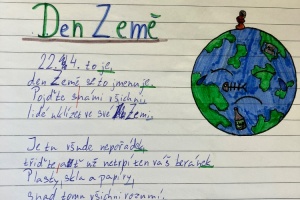 Den Země
22.4. to je,
den Země se to jmenuje.
Pojďte s námi všichni
lidé uklízet ve své Zemi.
Je tu všude nepořádek,
třiďte už netrpí ten váš beránek.
Plasty, skla a papíry,
snad tomu všichni rozumí.